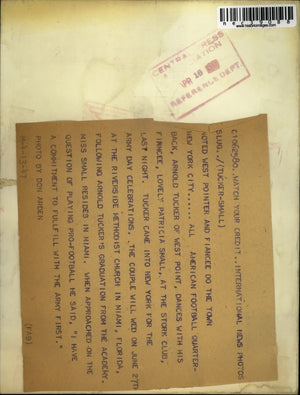 www.historicimages.com
CENTRAL PRESS
APR 16
REFERENCE DEPT.
C1062580..WATCH YOUR CREDIT..INTERNATIONAL NEWS PHOTOS
SLUG../(TUCKER-SMALL)
NOTED WEST POINTER AND FIANCEE DO THE TOWN
NEW YORK CITY......ALL AMERICAN FOOTBALL QUARTER-
BACK, ARNOLD TUCKER OF WEST POINT, DANCES WITH HIS
FIANCEE, LOVELY PATRICIA SMALL, AT THE STORK CLUB,
LAST NIGHT. TUCKER CAME INTO NEW YORK FOR THE
ARMY DAY CELEBRATIONS. THE COUPLE WILL WED ON JUNE 27TH
AT THE RIVERSIDE METHODIST CHURCH IN MIAMI, FLORIDA,
FOLLOWING ARNOLD TUCKER'S GRADUATION FROM THE ACADEMY.
MISS SMALL RESIDES IN MIAMI. WHEN APPROACHED ON THE
QUESTION OF PLAYING PRO-FOOTBALL HE SAID, "I HAVE
A COMMITMENT TO FULLFILL WITH THE ARMY FIRST."
PHOTO BY DON ARDEN